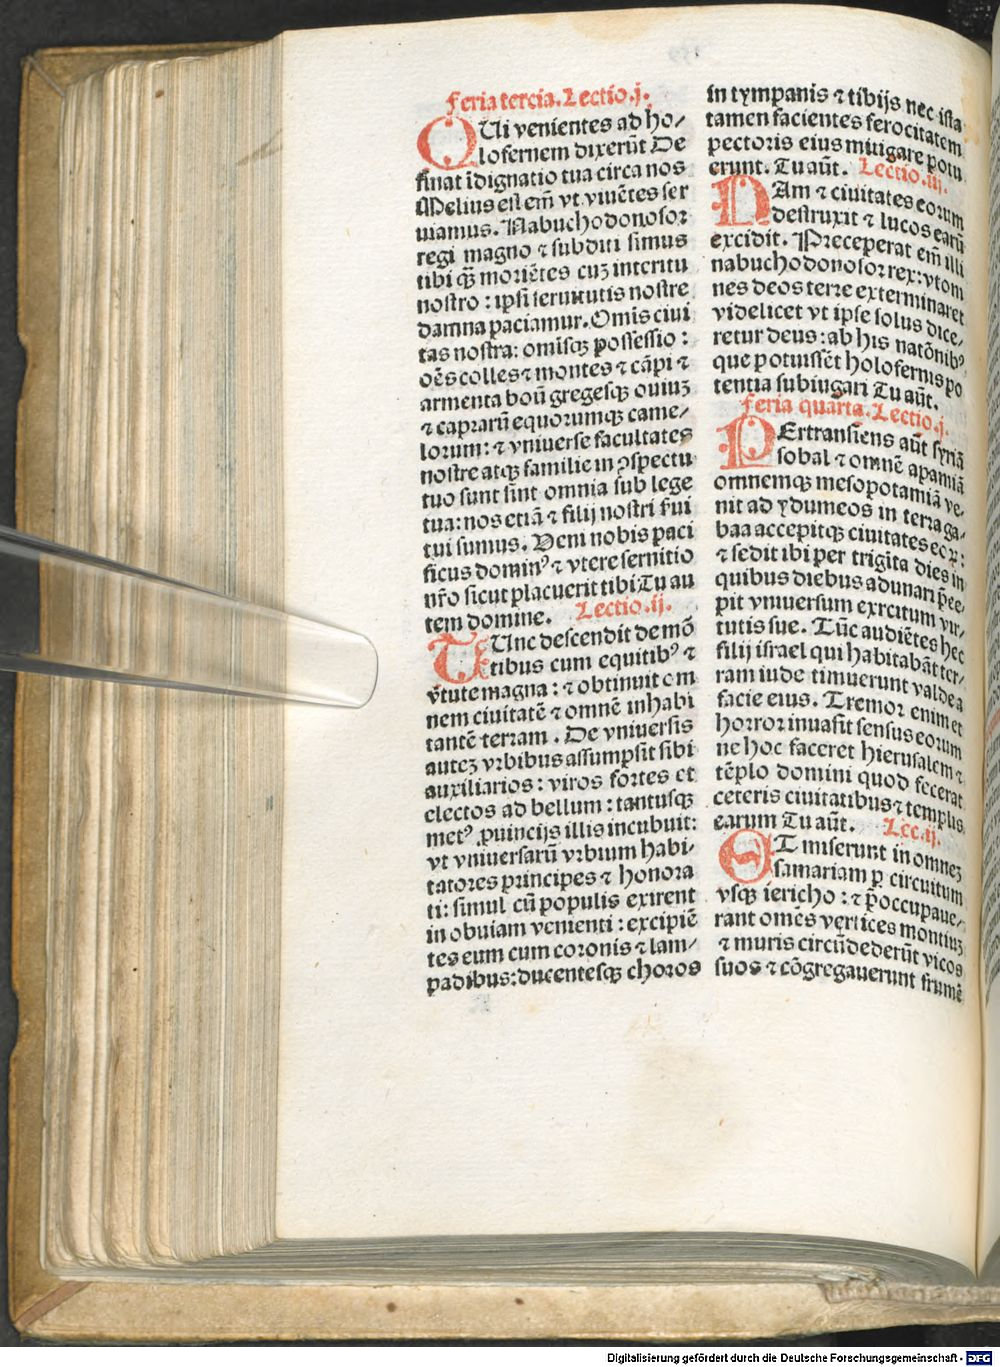 Feria tercia. Lectio .j.
QUi venientes ad ho-
lofernem dixerūt De
sinat īdignatio tua circa nos
Melius est em̄ vt viuētes ser
uiamus. Nabuchodonosor
regi magno ⁊ subditi simus
tibi q̄ꝫ moriētes cuꝫ interitu
nostro : ipsi seruitutis nostre
damna paciamur. Omīs ciui
tas nostra: omīsqꝫ possessio :
oēs colles ⁊ montes ⁊ cāpi ⁊
armenta boū gregesqꝫ ouiuꝫ
⁊ caprarū equorumqꝫ came-
lorum: ⁊ vniuerse facultates
nostre atqꝫ familie in ꝯspectu
tuo sunt sint omnia sub lege
tua: nos etiā ⁊ filij nostri s̄ui
tui sumus. Veni nobis paci
ficus dominꝰ ⁊ vtere seruitio
nr̄o sicut placuerit tibi Tu au
tem domine. Lectio .ij.
TUnc descendit de mō
tibus cum equitibꝰ ⁊
v̄tute magna : ⁊ obtinuit om
nem ciuitatē ⁊ omnē inhabi
tantē terram . De vniuersis
auteꝫ vrbibus assumpsit sibi
auxiliarios : viros fortes et
electos ad bellum : tantusqꝫ
metꝰ ꝓuincijs illis incubuit:
vt vniuersarū vrbium habi-
tatores principes ⁊ honora
ti: simul cū populis exirent
in obuiam venienti : excipiē
tes eum cum coronis ⁊ lam-
padibus: ducentesqꝫ choros
in tympanis ⁊ tibijs nec ista
tamen facientes ferocitatem
pectoris eius mitigare potu
erunt. Tu aūt. Lectio .iij.
NAm ⁊ ciuitates eorum
destruxit ⁊ lucos earū
excidit. Preceperat em̄ illi
nabuchodonosor rex: vt om
nes deos terre exterminaret
videlicet vt ipse solus dice-
retur deus : ab his natōnibꝰ
que potuissēt holofernis po
tentia subiugari Tu aūt.
Feria quarta. Lectio .j.
PErtransiens aūt syriā
sobal ⁊ omnē apamiā
omnemqꝫ mesopotamiā ve-
nit ad ydumeos in terra ga-
baa accepitqꝫ ciuitates eoꝝ :
⁊ sedit ibi per trigīta dies in
quibus diebus adunari p̄ce-
pit vniuersum exrcitum vir-
tutis sue. Tūc audiētes hec
filij israel qui habitabāt ter-
ram iude timuerunt valde a
facie eius. Tremor enim et
horror inuasit sensus eorum
ne hoc faceret hierusalem ⁊
tēplo domini quod fecerat
ceteris ciuitatibus ⁊ templis
earum Tu aūt. Lec.ij.
ET miserunt in omneꝫ
samariam ꝑ circuitum
vsqꝫ iericho : ⁊ p̄occupaue-
rant omēs vertices montiuꝫ
⁊ muris circūdederūt vicos
suos ⁊ cōgregauerunt frumē
Digitalisierung gefördert durch die Deutsche Forschungsgemeinschaft - DFG